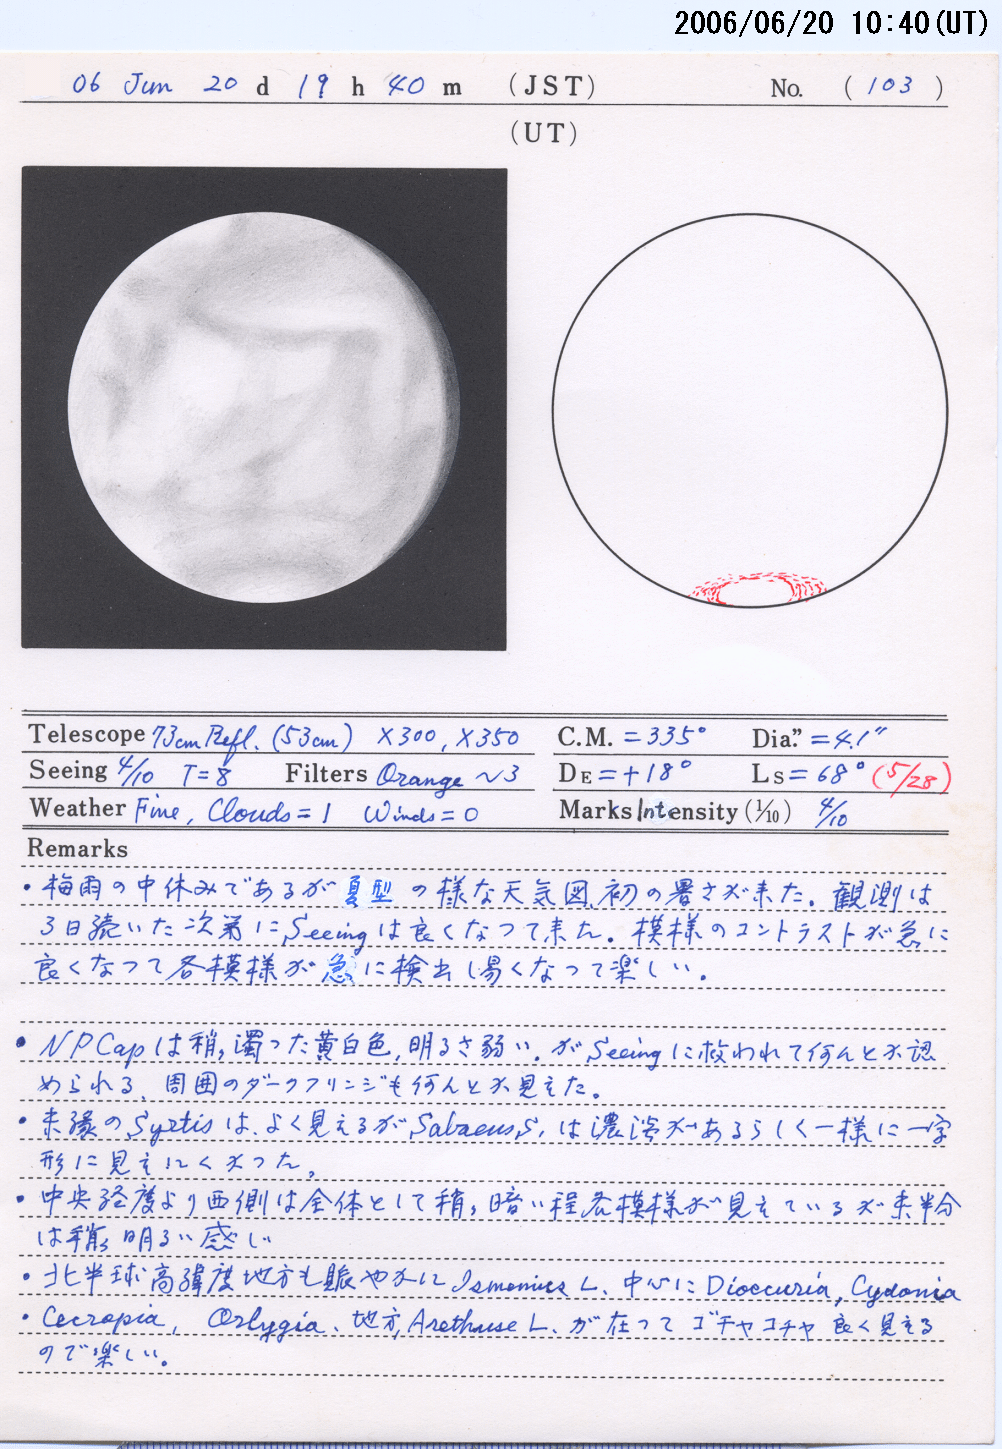 2006/06/20 10:40(UT)
06 Jun 20 d 19 h 40 m (JST) No. (103)
(UT)
Telescope 73cm Refl. (53cm) ×300, ×350
C.M. = 335° Dia." = 4.1"
Seeing 4/10 T=8 Filters Orange ~3
DE = +18° Ls = 68° (5/28)
Weather Fine, Clouds=1 Winds=0
Marks Intensity (1/10) 4/10
Remarks
・梅雨の中休みであるが夏型の様な天気図、初の暑さが来た。観測は
3日続いた次第にSeeingは良くなって来た。模様のコントラストが急に
良くなって各模様が急に検出し易くなって楽しい。
・NPCapは稍々濁った黄白色、明るさ弱い、がSeeingに救われて何んとか認
められる、周囲のダークフリンジも何んとか見えた。
・末縁のSyrtisは、よく見えるがSabaeus S, は濃淡があるらしく一様に一字
形に見えにくかった。
・中央経度より西側は全体として稍々暗い程各模様が見えているが東半分
は稍々明るい感じ
・北半球高緯度地方も賑やかにIsmenius L. 中心にDioscuria, Cydonia
・Cecropia, Ortygia、地方, Arethuse L. が在ってゴチャゴチャ良く見える
ので楽しい。